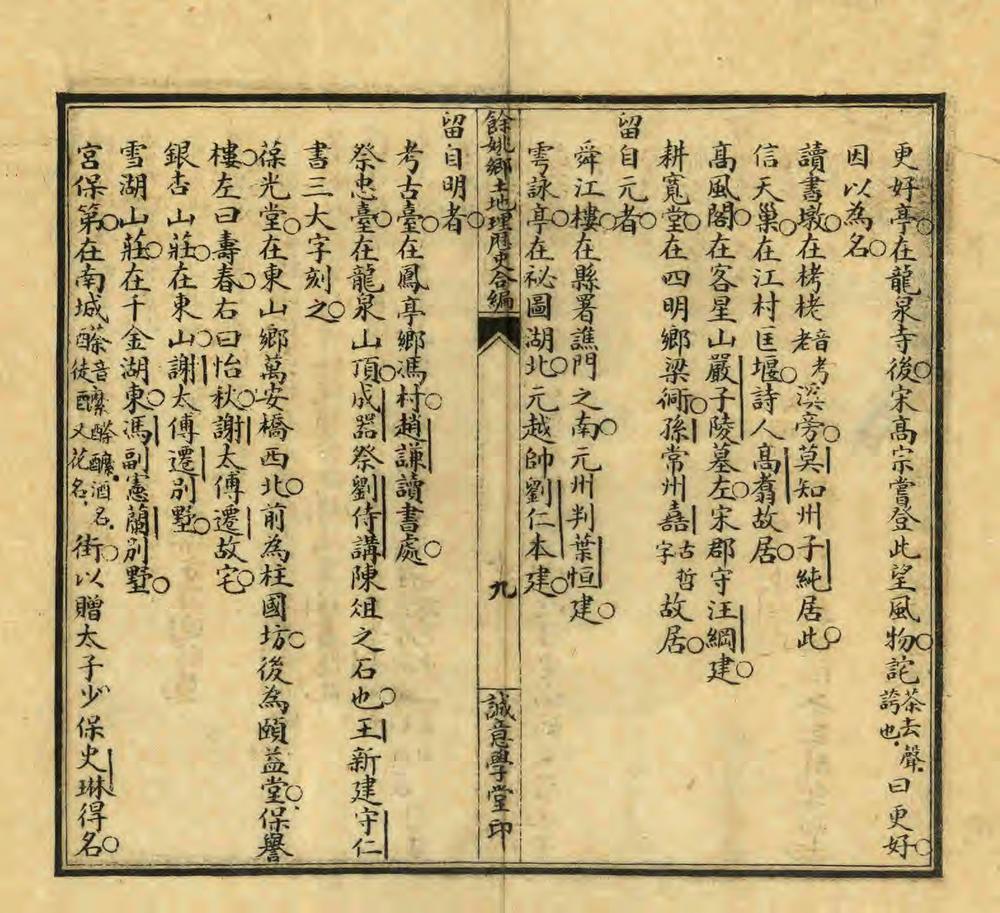 更好亭。在龍泉寺後。宋高宗嘗登此望風物。詫茶去聲.誇也.曰更好。
因以為名。
讀書墩。在栲栳音考老溪旁。莫知州子純居此。
信天巢。在江村匡堰。詩人高翥故居。
高風閣。在客星山嚴子陵墓左。宋郡守汪綱建。
耕寬堂。在四明鄉梁衕。孫常州嘉古哲字故居。
留自元者。
舜江樓。在縣署譙門之南。元州判葉恒建。
雩詠亭。在祕圖湖北。元越帥劉仁本建。
餘姚鄉土地理歷史合編
九
誠意學堂印
留自明者。
考古臺。在鳳亭鄉馮村。趙謙讀書處。
祭忠臺。在龍泉山頂。成器祭劉侍講陳俎之石也。王新建守仁
書三大字刻之。
葆光堂。在東山鄉萬安橋西北。前為柱國坊。後為頤益堂。保譽
樓。左曰壽春。右曰怡秋。謝太傅遷故宅。
銀杏山莊。在東山。謝太傅遷別墅。
雪湖山莊。在千金湖東。馮副憲蘭別墅。
宮保第。在南城酴音醾徒釄又酴醾酒名.花名.街。以贈太子少保史琳得名。